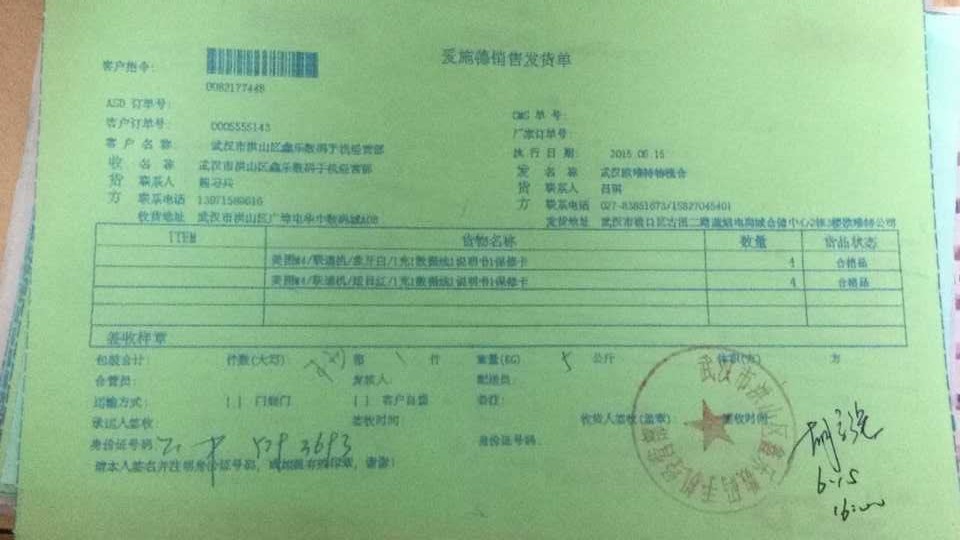 爱施德销售发货单
客户指令:
0082177448
ASD 订单号:
CMS 单 号:
客户订单号: 0005555143
厂家订单号:
客 户 名 称 武汉市洪山区鑫乐数码手机经营部
执 行 日 期: 2015.06.15
收 名 称 武汉市洪山区鑫乐数码手机经营部
发 名 称
货 联系人
货 联系人
方 联系电话 13971589616
方 联系电话 027-83851673/15827045401
收货地址 武汉市洪山区广埠屯华中数码城
发货地址 武汉市硚口区古田二路
ITEM 货物名称 数量 货品状态
美图M4/联通机/象牙白/1充1数据线1说明书1保修卡 4 合格品
美图M4/联通机/1充1数据线1说明书1保修卡 4 合格品
签收样章
包装合计: 件数(大写) 箱 1 件 重量(KG) 5 公斤 体积(方) 方
仓管员: 发货人: 配送员:
运输方式: [ ] 门到门 [ ] 客户自提 备注:
承运人签收 签收时间: 收货人签收(盖章) 签收时间:
身份证号码: 身份证号码:
请本人签名并注明身份证号码,或加盖有效印章,谢谢!
武汉市洪山区鑫乐数码手机经营部
6.15
16:00